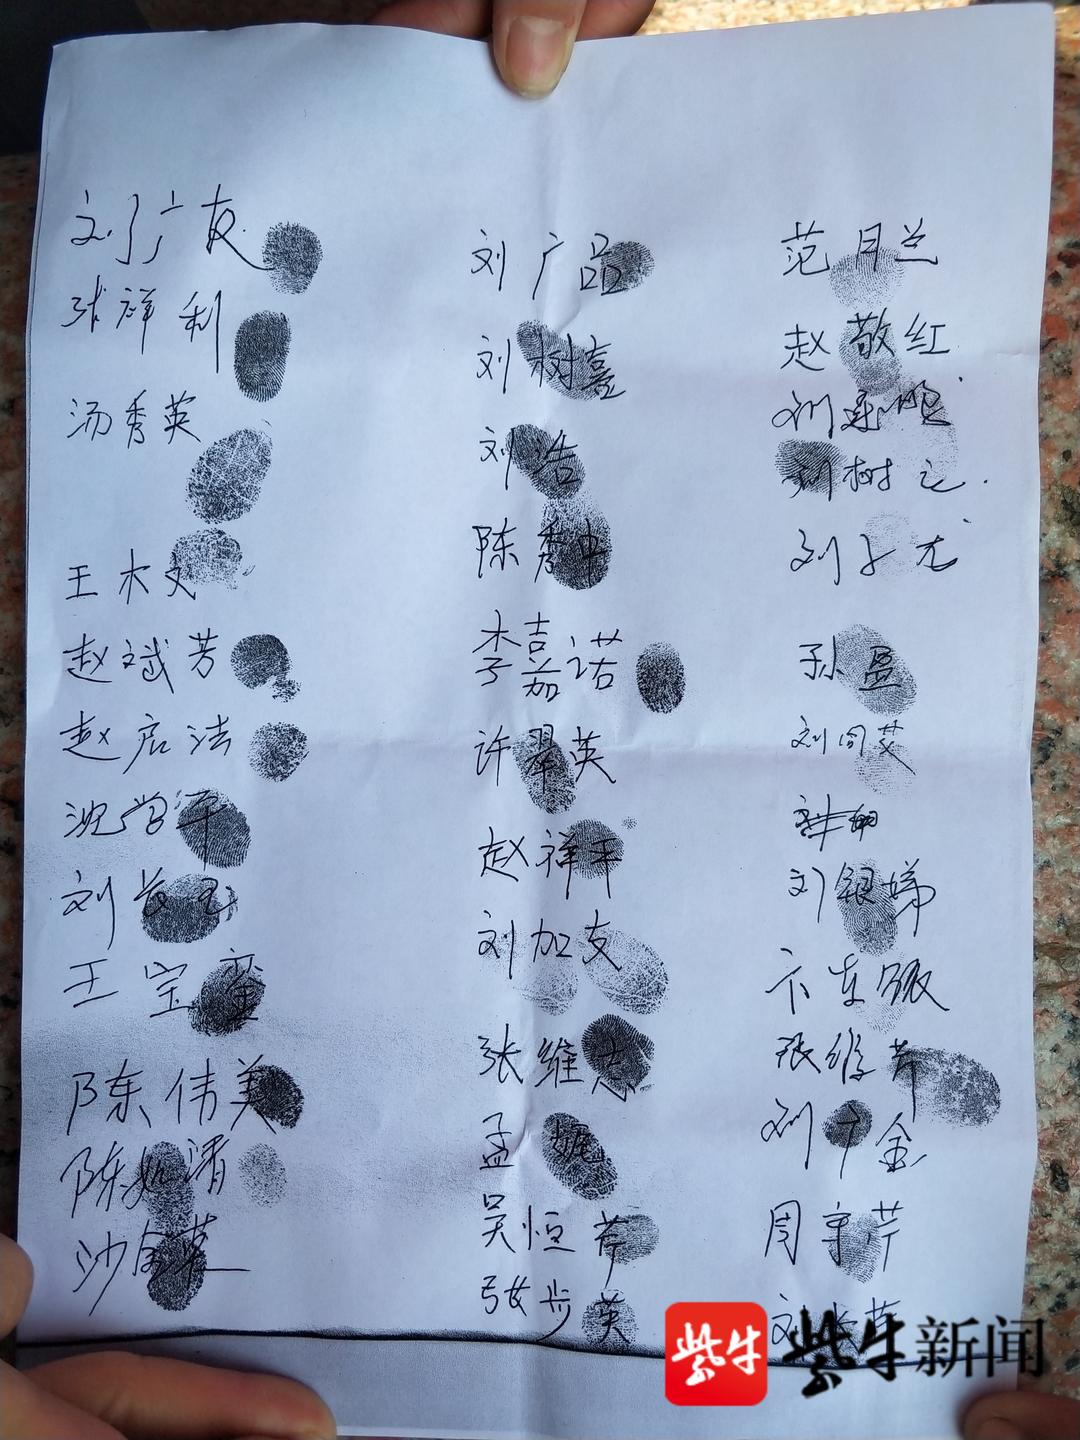 刘广友
张祥利
汤秀英
王木文
赵斌芳
赵启法
沈学平
刘长玉
王宝銮
陈伟美
陈如清
沙金英
刘广品
刘树嘉
刘浩
陈秀中
李嘉诺
许翠英
赵祥平
刘加友
张维志
孟娓
吴恒芹
张步英
范月兰
赵敬红
刘树元
刘子龙
孙盈
刘同艾
刘银娣
张维芹
刘广金
周宇芹
紫牛 紫牛新闻